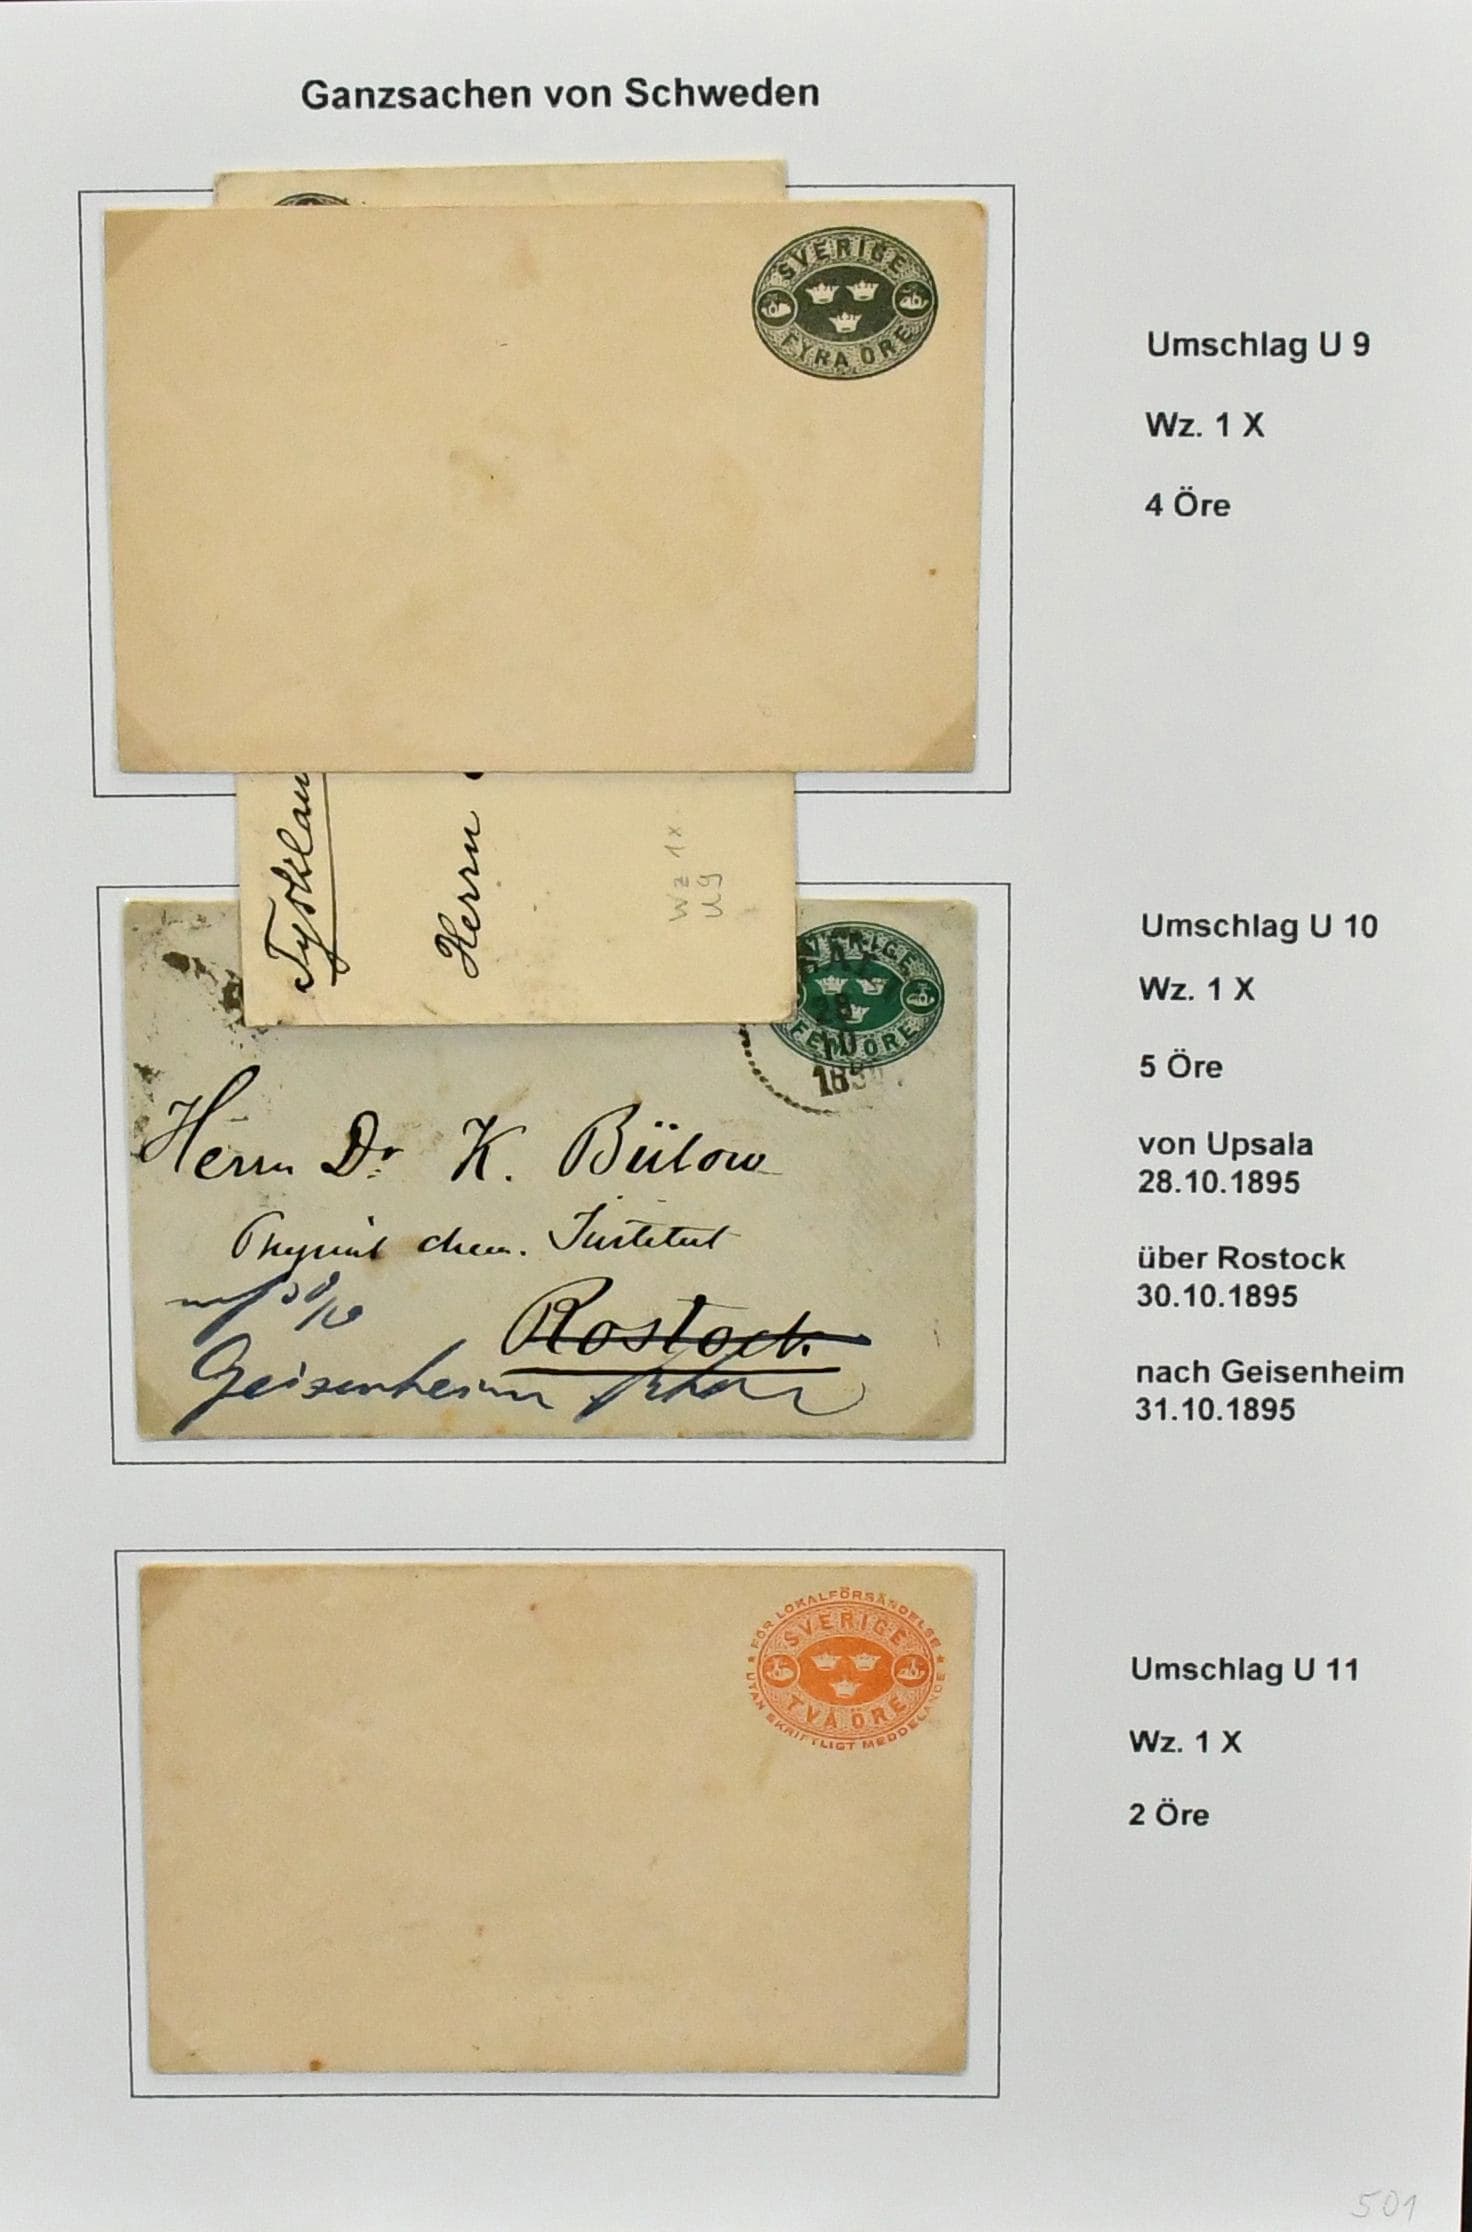 Ganzsachen von Schweden
SVERIGE
FYRA ÖRE
Umschlag U 9
Wz. 1 X
4 Öre
Herrn
Wz 1x
U9
SVERIGE
FEM ÖRE
28
10
Herrn Dr K. Bülow
chem. Institut
Rostock
Geisenheim
Umschlag U 10
Wz. 1 X
5 Öre
von Upsala
28.10.1895
über Rostock
30.10.1895
nach Geisenheim
31.10.1895
FÖR LOKALFÖRSÄNDELSE
SVERIGE
TVÅ ÖRE
UTAN SKRIFTLIGT MEDDELANDE
Umschlag U 11
Wz. 1 X
2 Öre
501